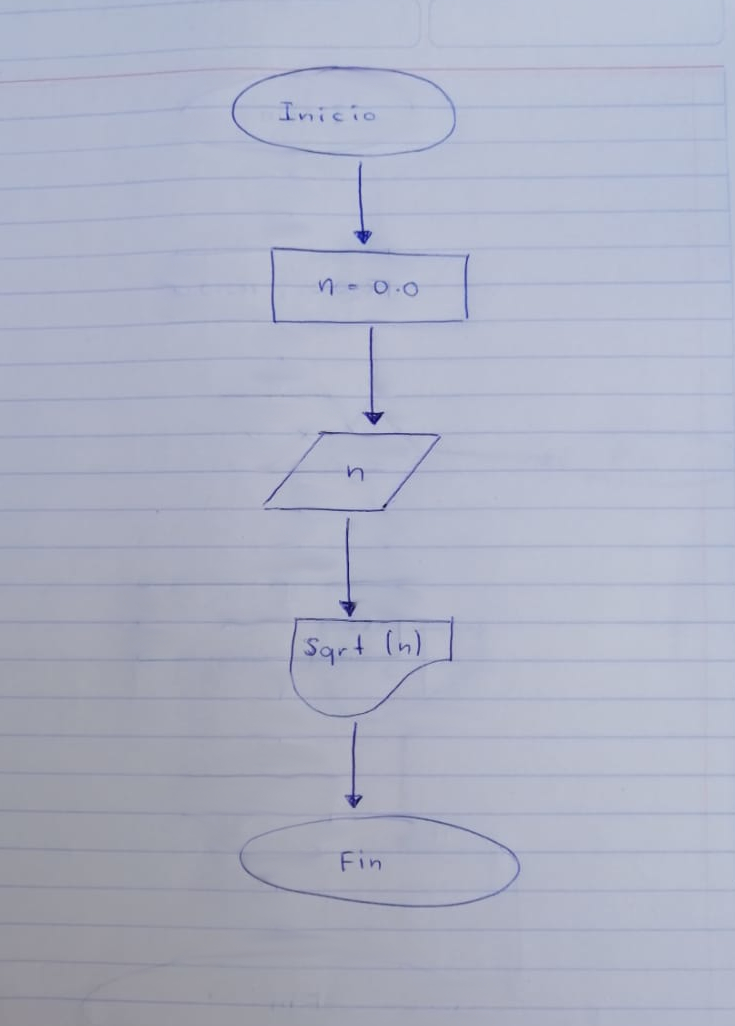 Inicio
n = 0.0
n
Sqrt (n)
Fin